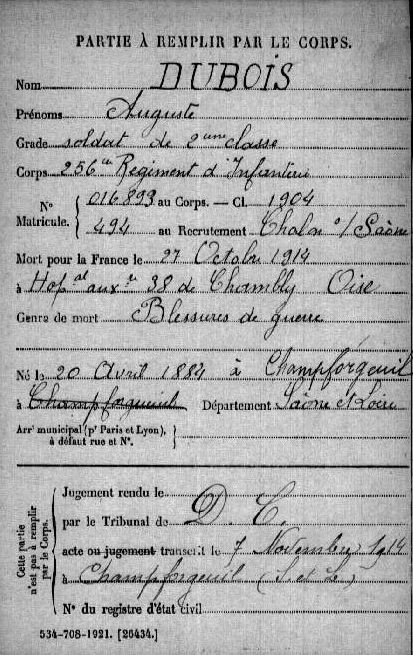 PARTIE À REMPLIR PAR LE CORPS.
Nom DUBOIS
Prénoms Auguste
Grade soldat de 2eme classe
Corps 256e Régiment d'Infanterie
N° Matricule. { 016893 au Corps. — Cl. 1904
494 au Recrutement Chalon s/Saône
Mort pour la France le 27 Octobre 1914
à Hopal auxre 38 de Chambly Oise
Genre de mort Blessures de guerre
Né le 20 Avril 1884 à Champforgeuil
à Champforgeuil Département Saône et Loire
Arrt municipal (pr Paris et Lyon), à défaut rue et N°. }
Cette partie n'est pas à remplir par le Corps.
Jugement rendu le
par le Tribunal de D. C.
acte ou jugement transcrit le 7 Novembre 1914
à Champforgeuil (S. et L.)
N° du registre d'état civil
534-708-1921. [26434.]